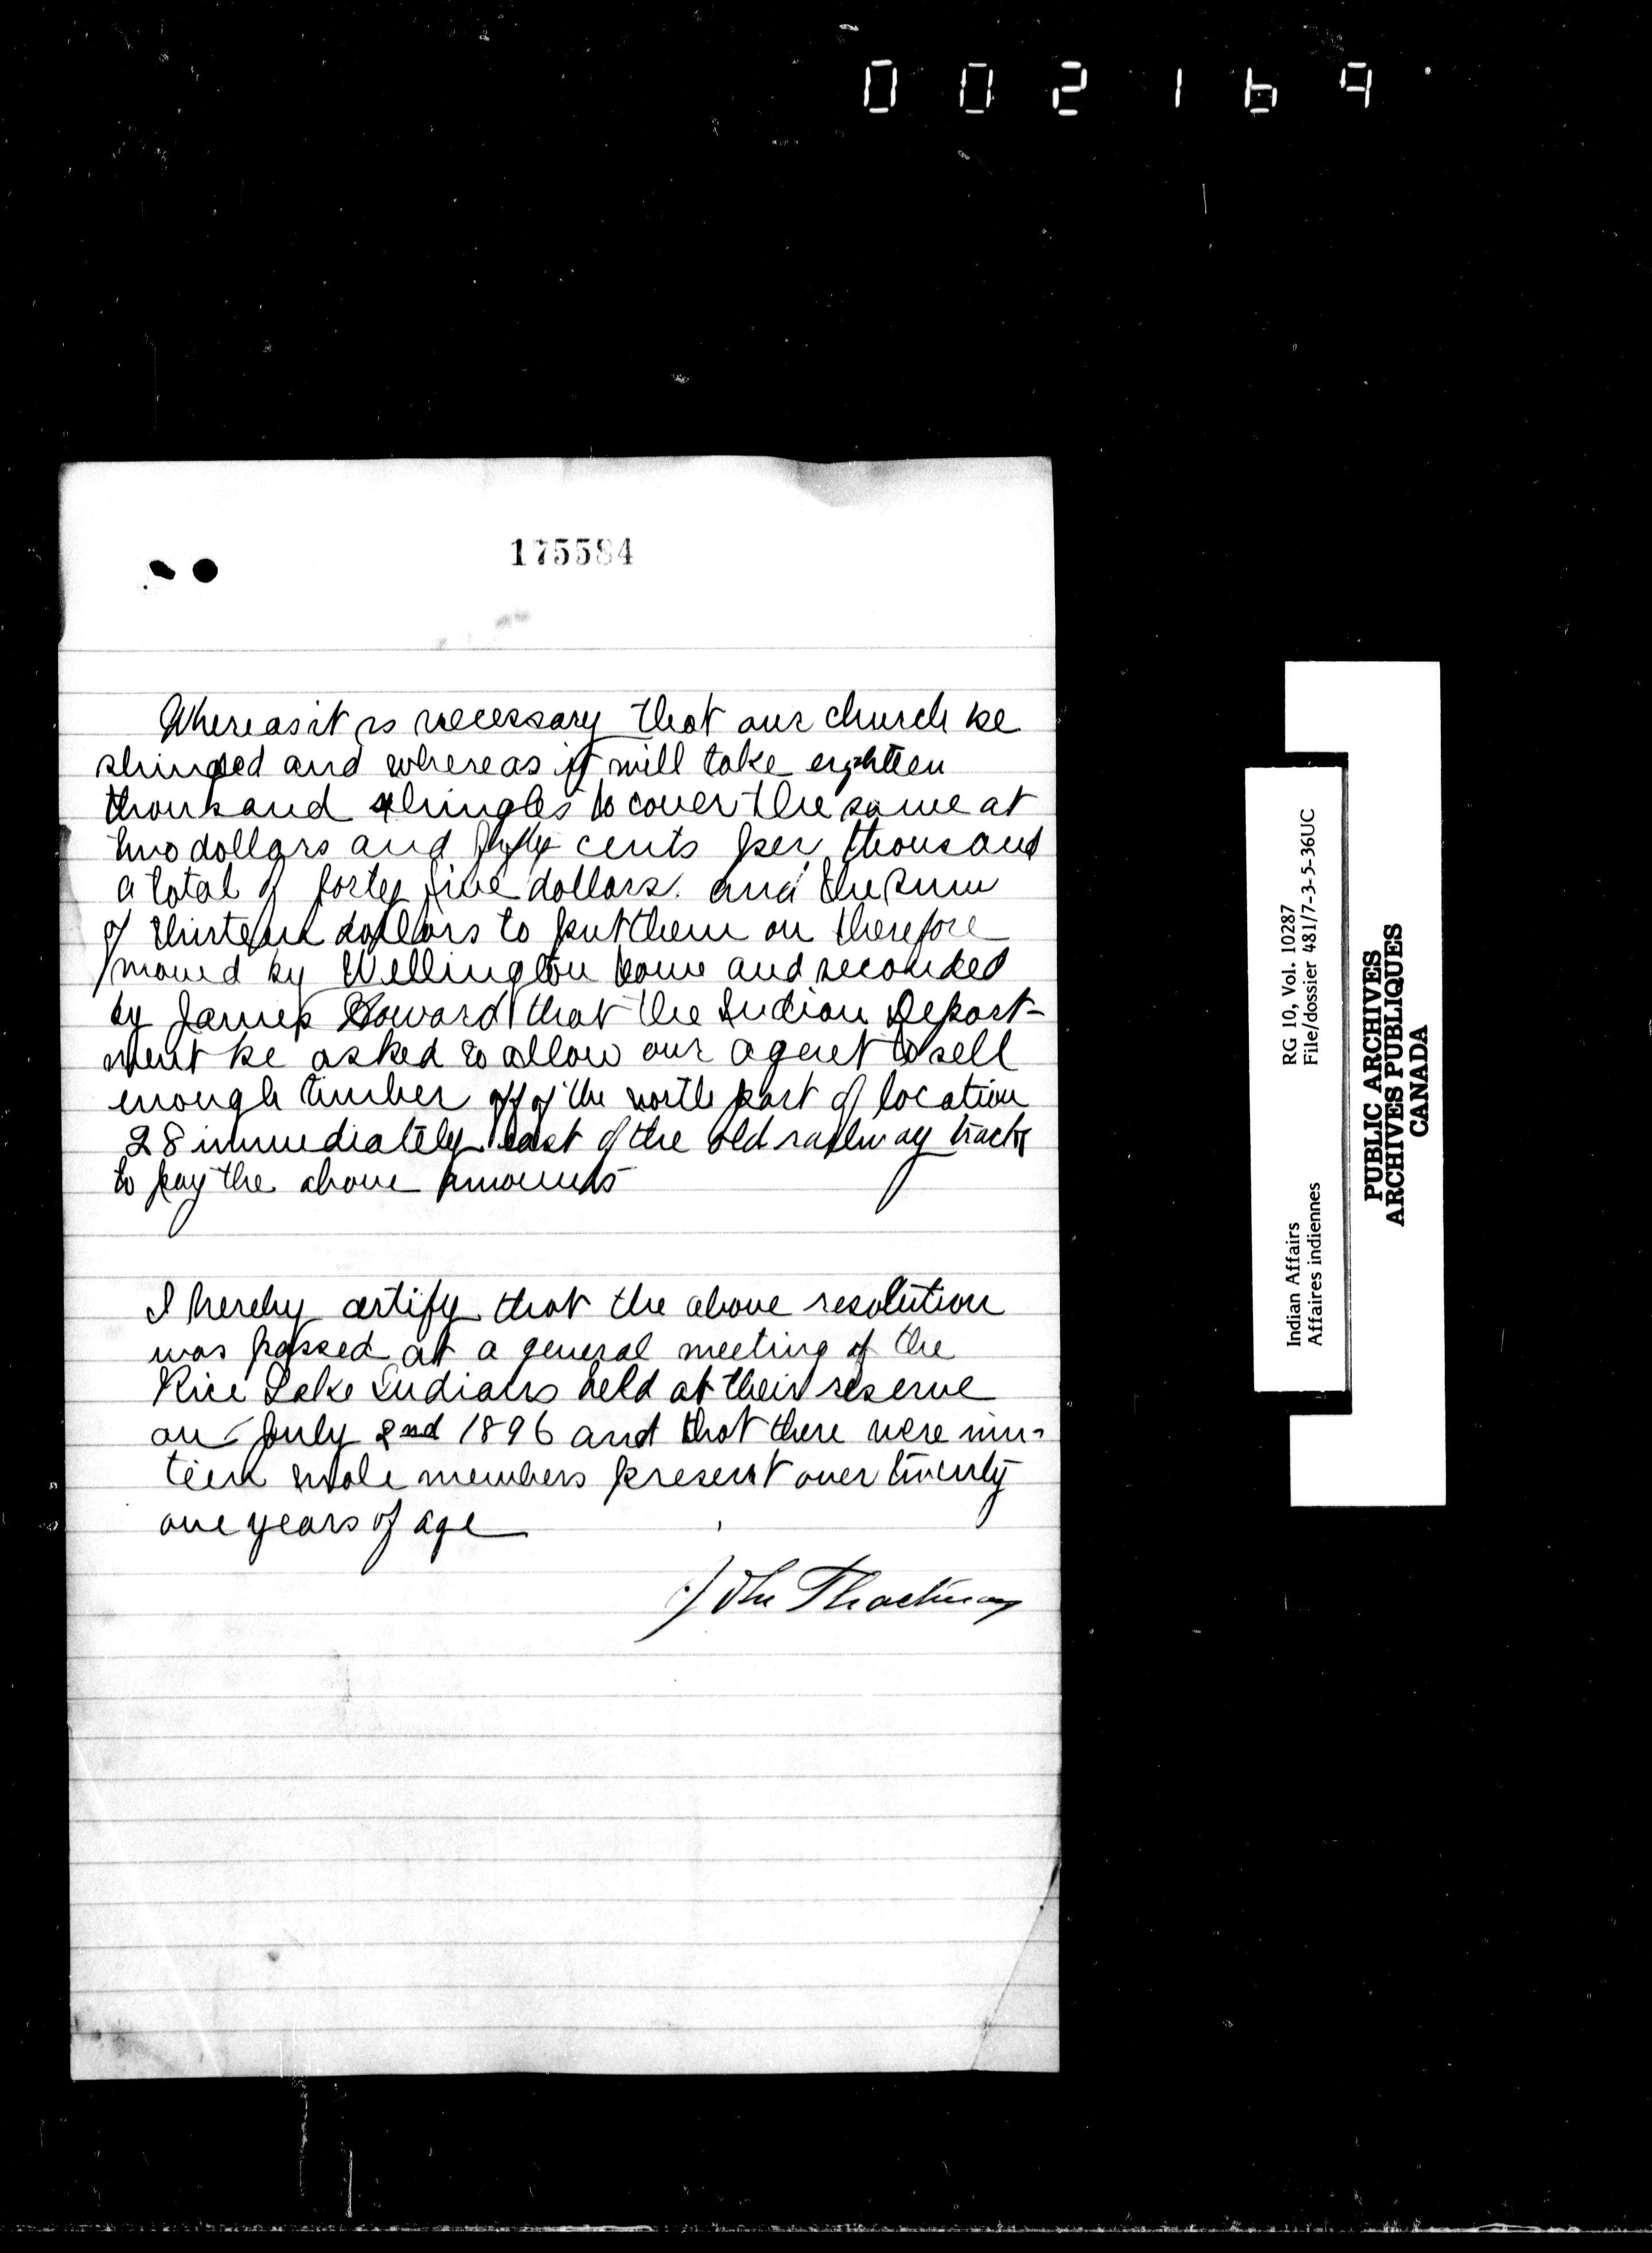 002169
175584
Whereas it is necessary that our church be
shingled and whereas it will take eighteen
thousand shingles to cover the same at
two dollars and fifty cents per thousand
a total of forty five dollars. and the sum
of thirteen dollars to put them on therefore
moved by Wellington and seconded
by James Howard that the Indian Depart-
ment be asked to allow our agent to sell
enough timber off of the north part of location
28 immediately east of the old railway track
to pay the above amounts
I hereby certify that the above resolution
was passed at a general meeting of the
Rice Lake Indians held at their reserve
on July 2nd 1896 and that there were nin-
teen male members present over twenty
one years of age
John Thackeray
Indian Affairs RG 10, Vol. 10287
Affaires indiennes File/dossier 481/7-3-5-36UC
PUBLIC ARCHIVES
ARCHIVES PUBLIQUES
CANADA